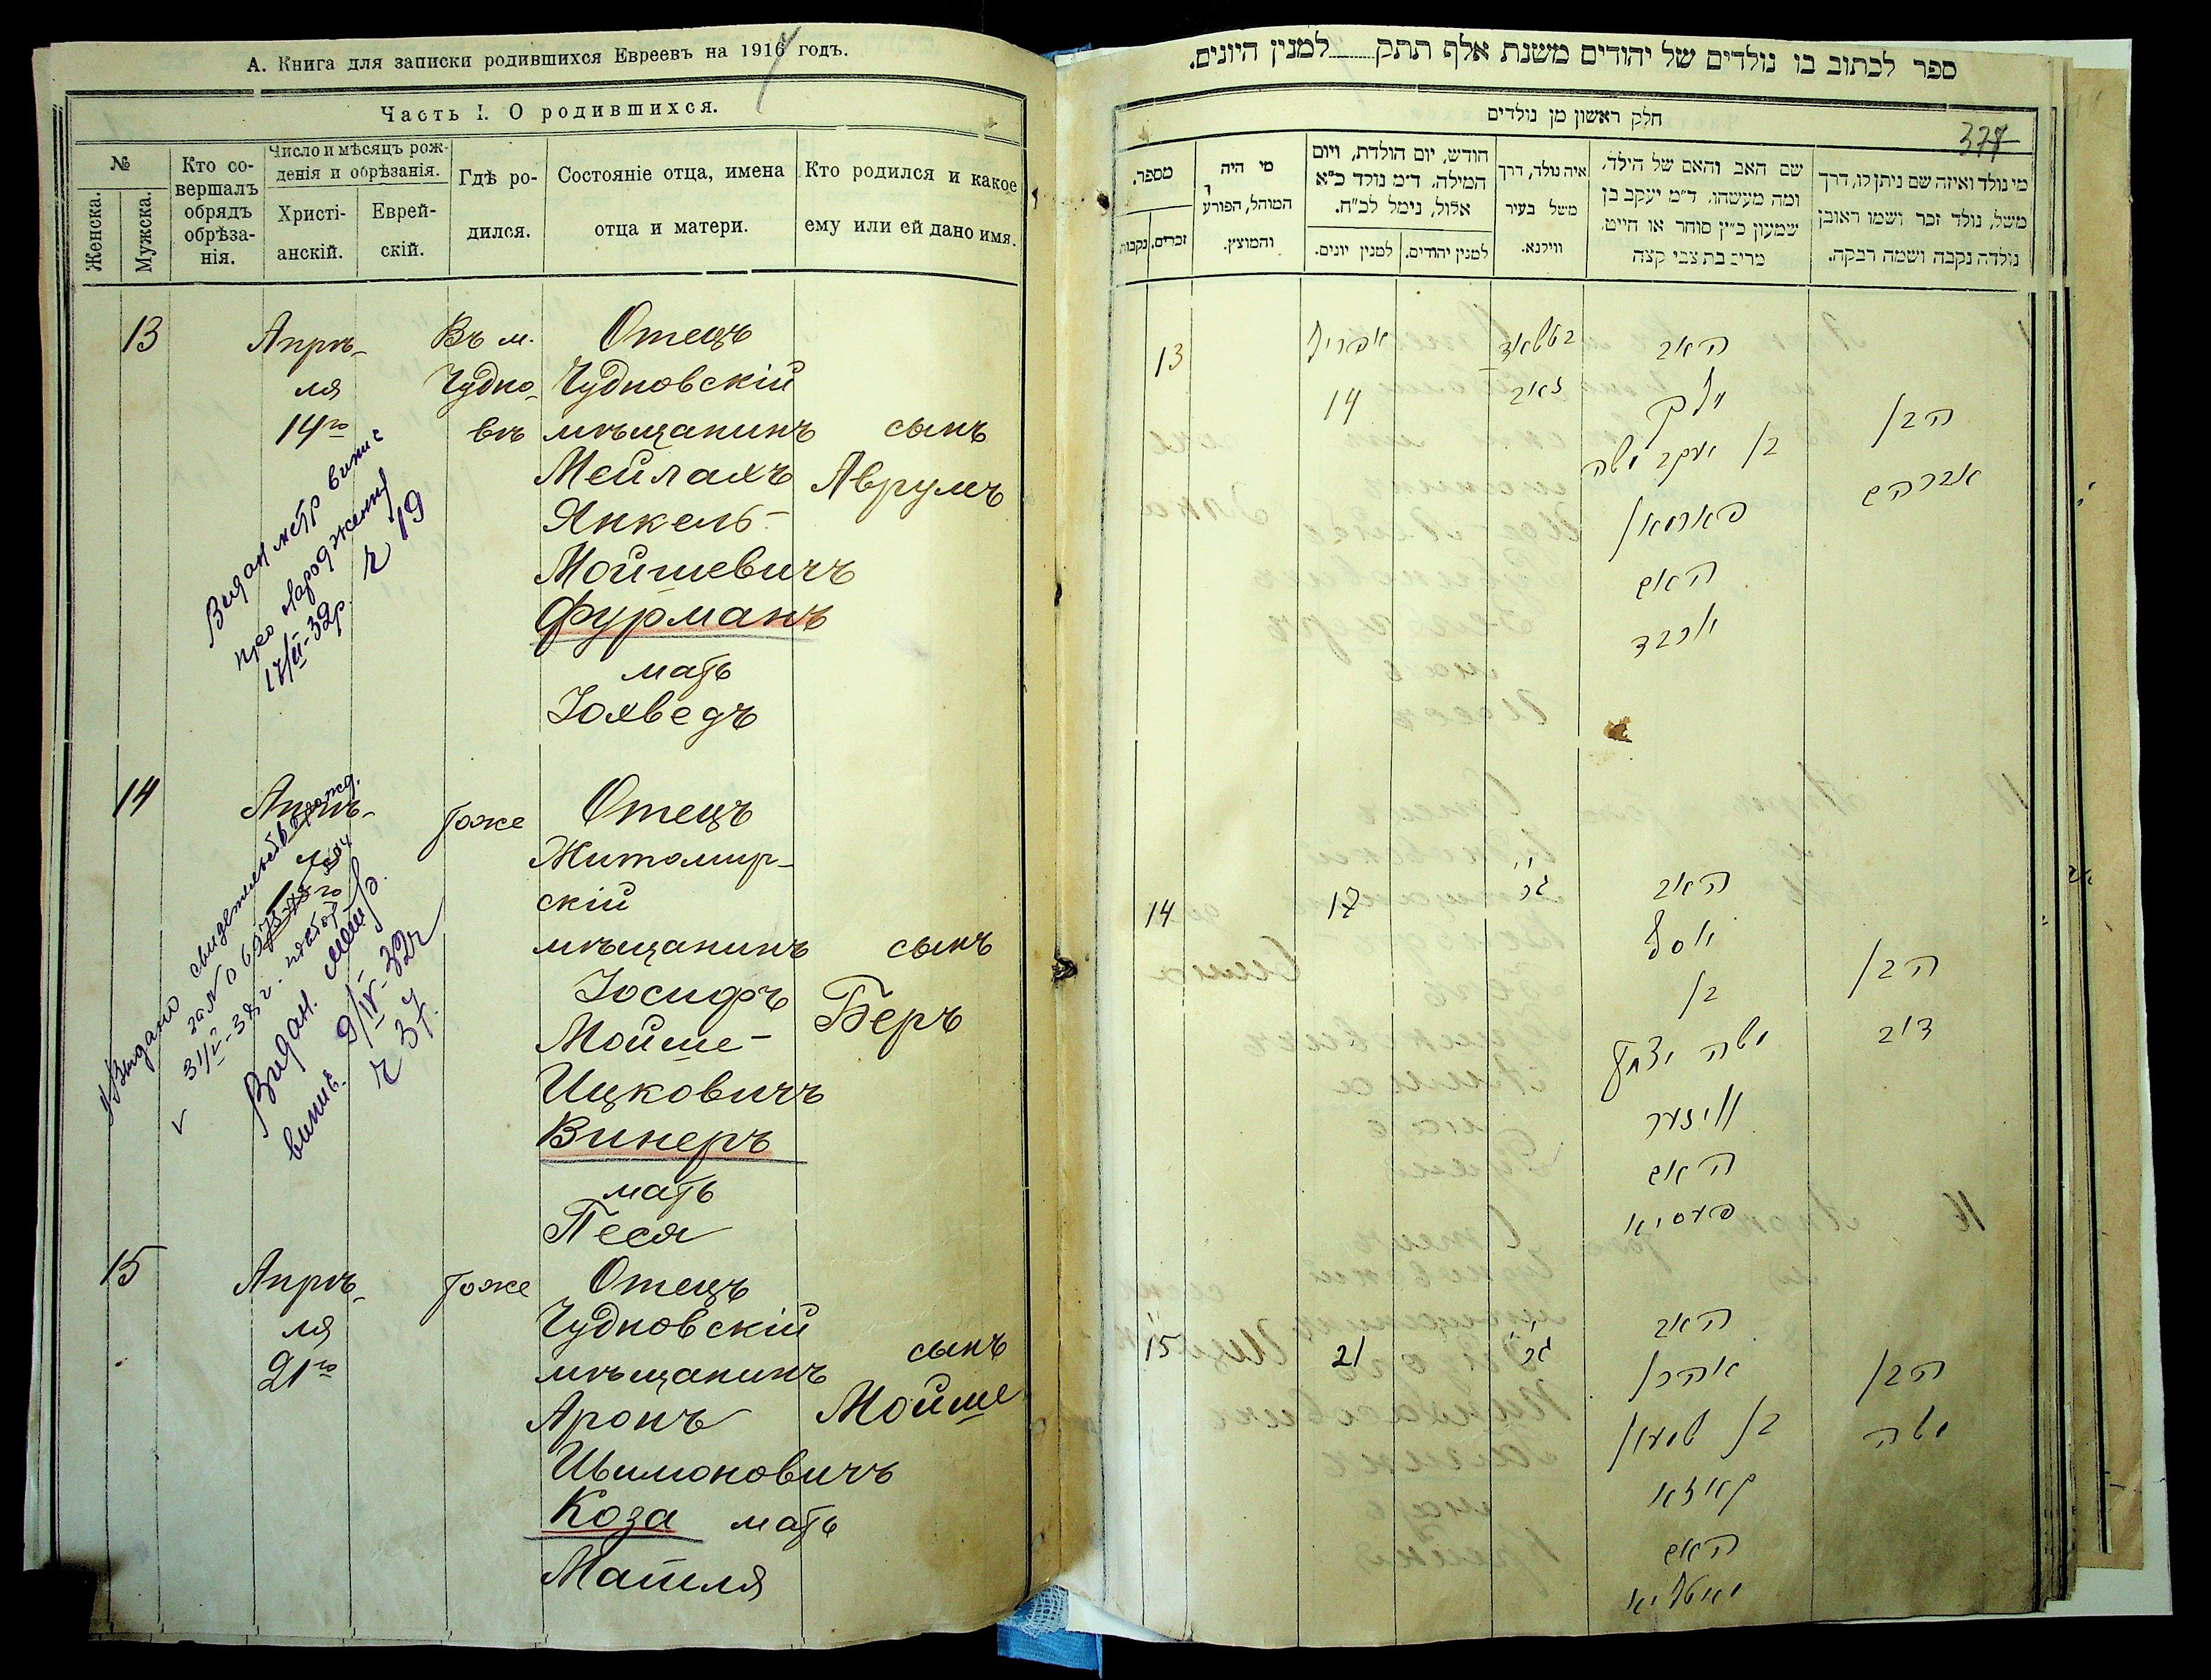 А. Книга для записки родившихся Евреевъ на 1917 годъ.
Часть I. О родившихся.
№
Женска.
Мужска.
Кто со-
вершалъ
обрядъ
обрѣза-
нія.
Число и мѣсяцъ рож-
денія и обрѣзанія.
Христі-
анскій.
Еврей-
скій.
Гдѣ ро-
дился.
Состояніе отца, имена
отца и матери.
Кто родился и какое
ему или ей дано имя.
13
Апрѣ-
ля
14го
Въ м.
Чудно-
вѣ
Отецъ
Чудновскій
мѣщанинъ
Мейлахъ
Янкель-
Мойшевичъ
Фурманъ
мать
Іохведъ
сынъ
Аврумъ
Видан метр випис
про народження
17/II-32р. ч 19
14
Апрѣ-
тоже
Отецъ
Житомир-
скій
мѣщанинъ
Іосифъ
Мойше-
Ицковичъ
Винеръ
мать
Песя
сынъ
Беръ
Видан. метр.
випис. 9/IV-32г
ч 37
15
Апрѣ-
ля
21го
тоже
Отецъ
Чудновскій
мѣщанинъ
Аронъ
Шимоновичъ
Коза мать
Матля
сынъ
Мойше
ספר לכתוב בו נולדים של יהודים משנת אלף תתק למנין היונים.
חלק ראשון מן נולדים
מספר.
זכרים.
נקבות
מי היה
המוהל, הפורע
והמוצץ.
חודש, יום הולדת, ויום
המילה. ד״מ נולד כ״א
אלול, נימל לכ״ח.
למנין יהודים.
למנין יונים.
איה נולד, דרך
משל בעיר
ווילנא.
שם האב והאם של הילד,
ומה מעשהו. ד״מ יעקב בן
שמעון כ״ץ סוחר או חייט.
מרים בת צבי קצה
מי נולד ואיזה שם ניתן לו, דרך
משל, נולד זכר ושמו ראובן
נולדה נקבה ושמה רבקה.
13
אפריל
14
האב
בן יעקב משה
פורמאן
האם
יוכבד
הבן
אברהם
14
17
האב
יוסף
בן
משה יצחק
ווינער
האם
פעסיא
הבן
דוב
15
21
האב
אהרן
בן שמעון
קאזא
האם
מאטליא
הבן
משה